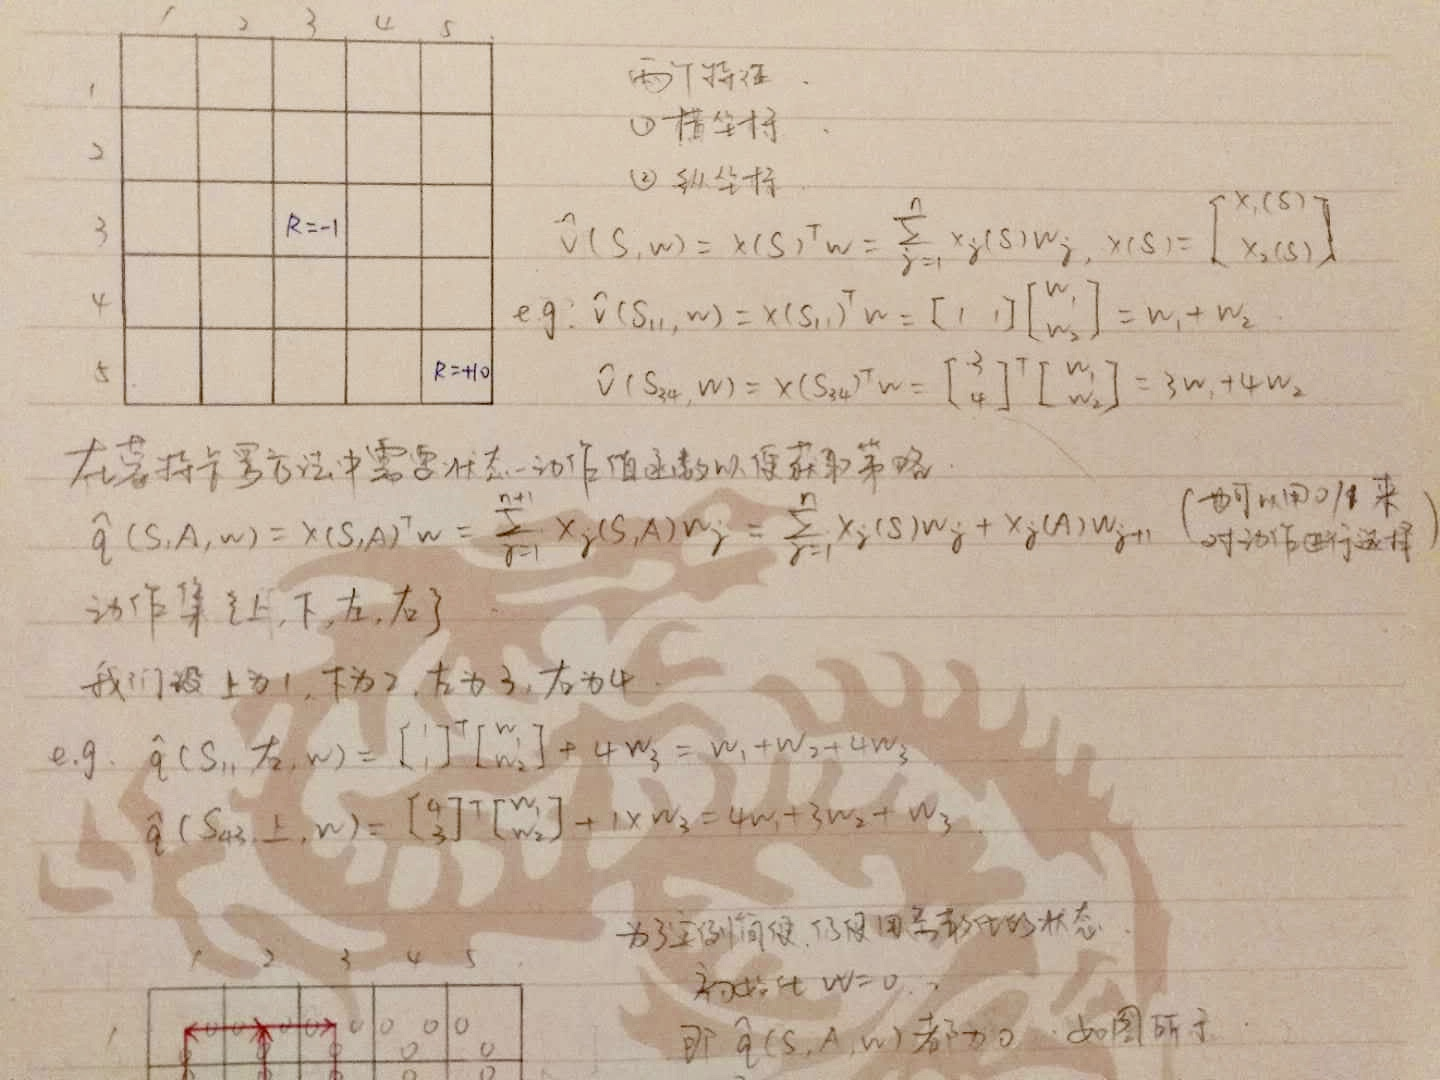 1 2 3 4 5
1
2
3 R=-1
4
5 R=+10
两个特征.
① 横坐标.
② 纵坐标.
v̂(S,w) = x(S)ᵀw = Σ_{j=1}^{n} x_j(S)w_j, x(S) = [x₁(S) x₂(S)]
e.g: v̂(S₁₁,w) = x(S₁₁)ᵀw = [1 1][w₁ w₂] = w₁+w₂.
v̂(S₃₄,w) = x(S₃₄)ᵀw = [3 4]ᵀ[w₁ w₂] = 3w₁+4w₂
在蒙特卡罗方法中需要状态-动作值函数以便获取策略.
q̂(S,A,w) = x(S,A)ᵀw = Σ_{j=1}^{n+1} x_j(S,A)w_j = Σ_{j=1}^{n} x_j(S)w_j + x_j(A)w_{j+1} (也可以用0/1来
对动作进行选择)
动作集{上,下,左,右}
我们设上为1,下为2,左为3,右为4.
e.g. q̂(S₁₁,右,w) = [1 1]ᵀ[w₁ w₂] + 4w₃ = w₁+w₂+4w₃
q̂(S₄₃,上,w) = [4 3]ᵀ[w₁ w₂] + 1×w₃ = 4w₁+3w₂+w₃.
为了举例简便,仍使用之前的状态.
初始化 W=0.
即 q̂(S,A,w)都为0.如图所示.
1 2 3 4 5
1 0 0 0 0 0 0 0 0
0 0 0
0 0 0 0 0